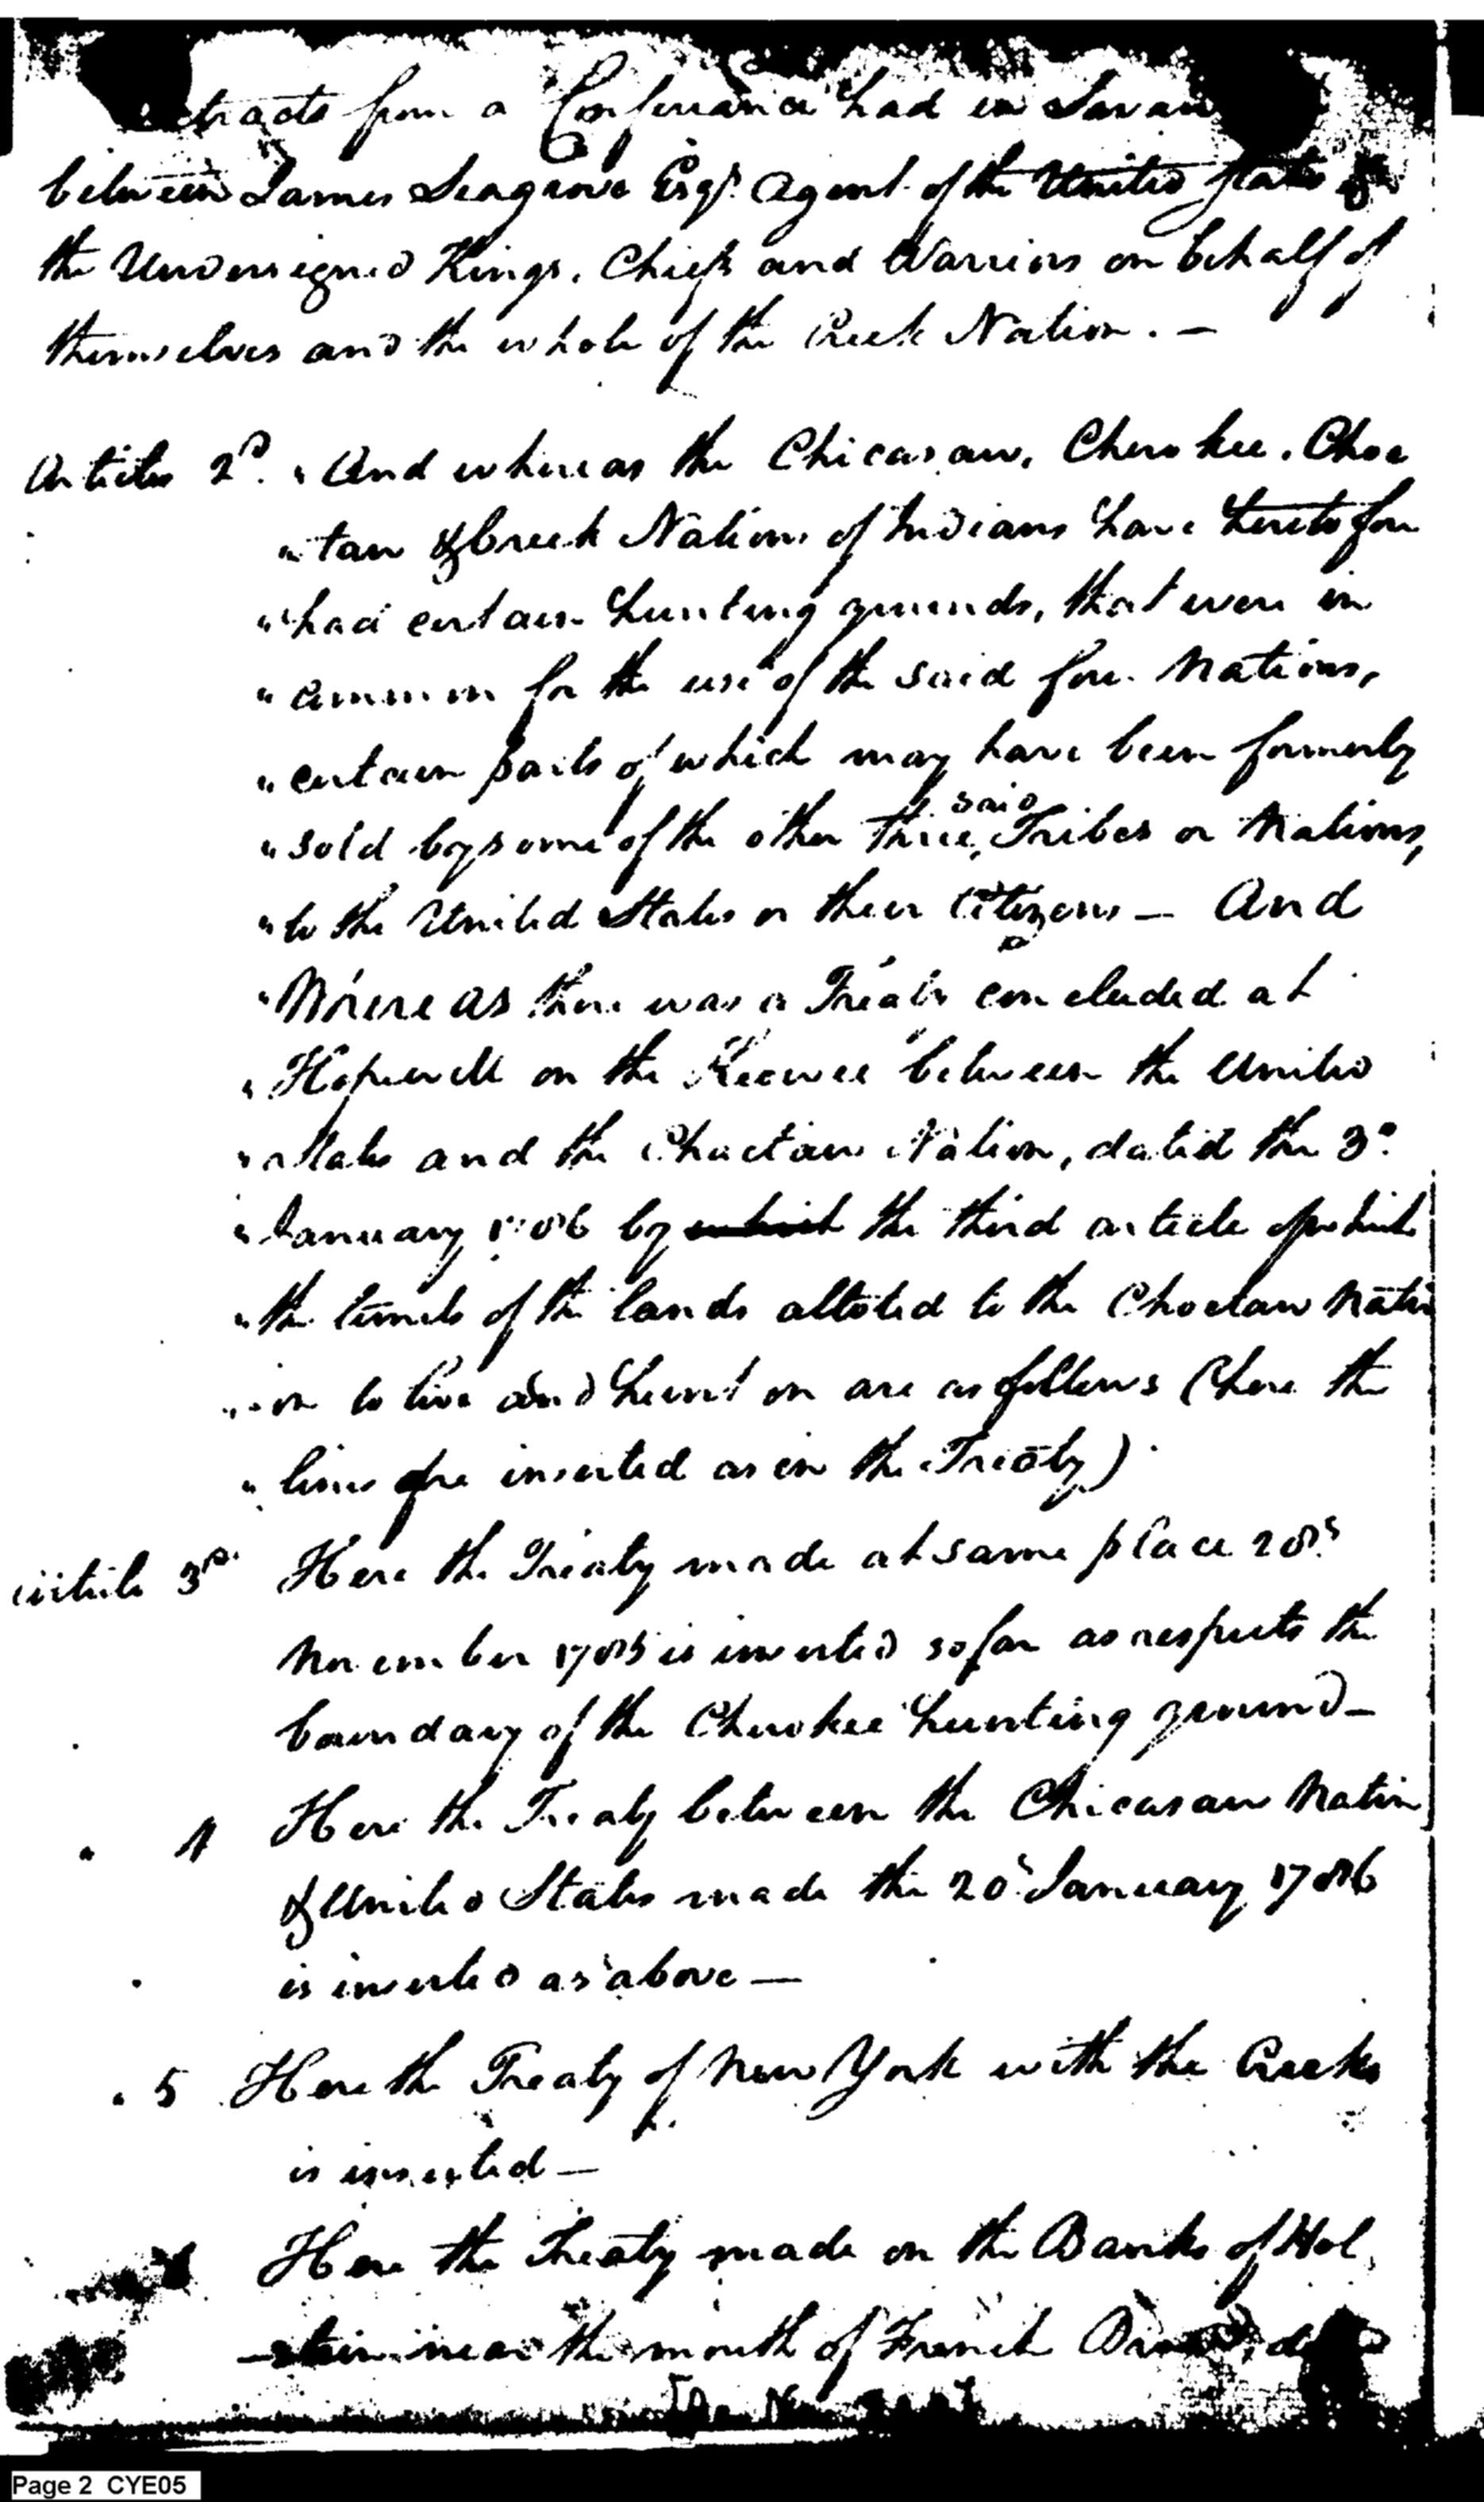 tracts from a Conference had in Savan
between James Seagrove Esqr. Agent of the United States &
the Undersigned Kings, Chiefs and Warriors on behalf of
themselves and the whole of the Creek Nation. —
Article 2d. "And whereas the Chicasaw, Cherokee, Choc
"taw & Creek Nations of Indians have heretofore
"had certain hunting grounds, that were in
"common for the use of the said four Nations,
"certain parts of which may have been formerly
"sold by some of the other three said Tribes or Nations,
"to the United States or their Citizens — And
"Whereas there was a Treaty concluded at
"Hopewell on the Keowee between the United
"States and the Choctaw Nation, dated the 3d.
"January 1786 by which the third article of which
"the limits of the lands alloted to the Choctaw Nati
"on to live and hunt on are as follows (here the
"lines are inserted as in the Treaty)
article 3d. Here the Treaty made at same place 28th.
November 1785 is inserted so far as respects the
boundary of the Cherokee hunting ground —
" 4 Here the Treaty between the Chicasaw Nation
& United States made the 20 January 1786
is inserted as above —
" 5 Here the Treaty of New York with the Creeks
is inserted —
Here the Treaty made on the Banks of Hol
stein near the mouth of French
Page 2 CYE05